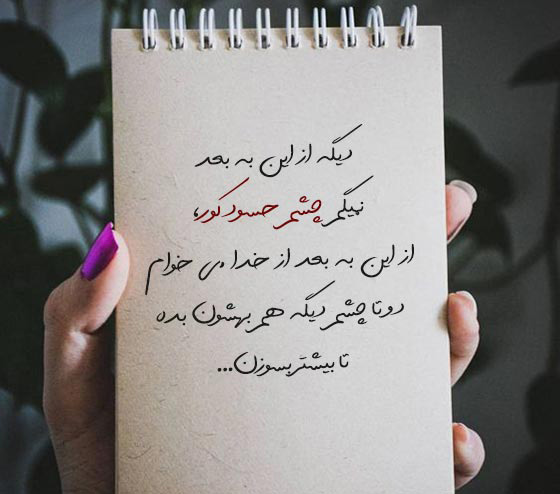 دیگه از این به بعد
نمیگم چشم حسود کور،
از این به بعد از خدا می خوام
دو تا چشم دیگه هم بهشون بده
تا بیشتر بسوزن...